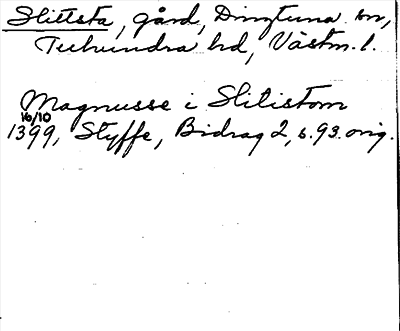 Slittsta, gård, Dingtuna sn,
Tuhundra hd, Västm. l.
Magnusse i Slitistom
16/10
1399, Styffe, Bidrag 2, s. 93. orig.